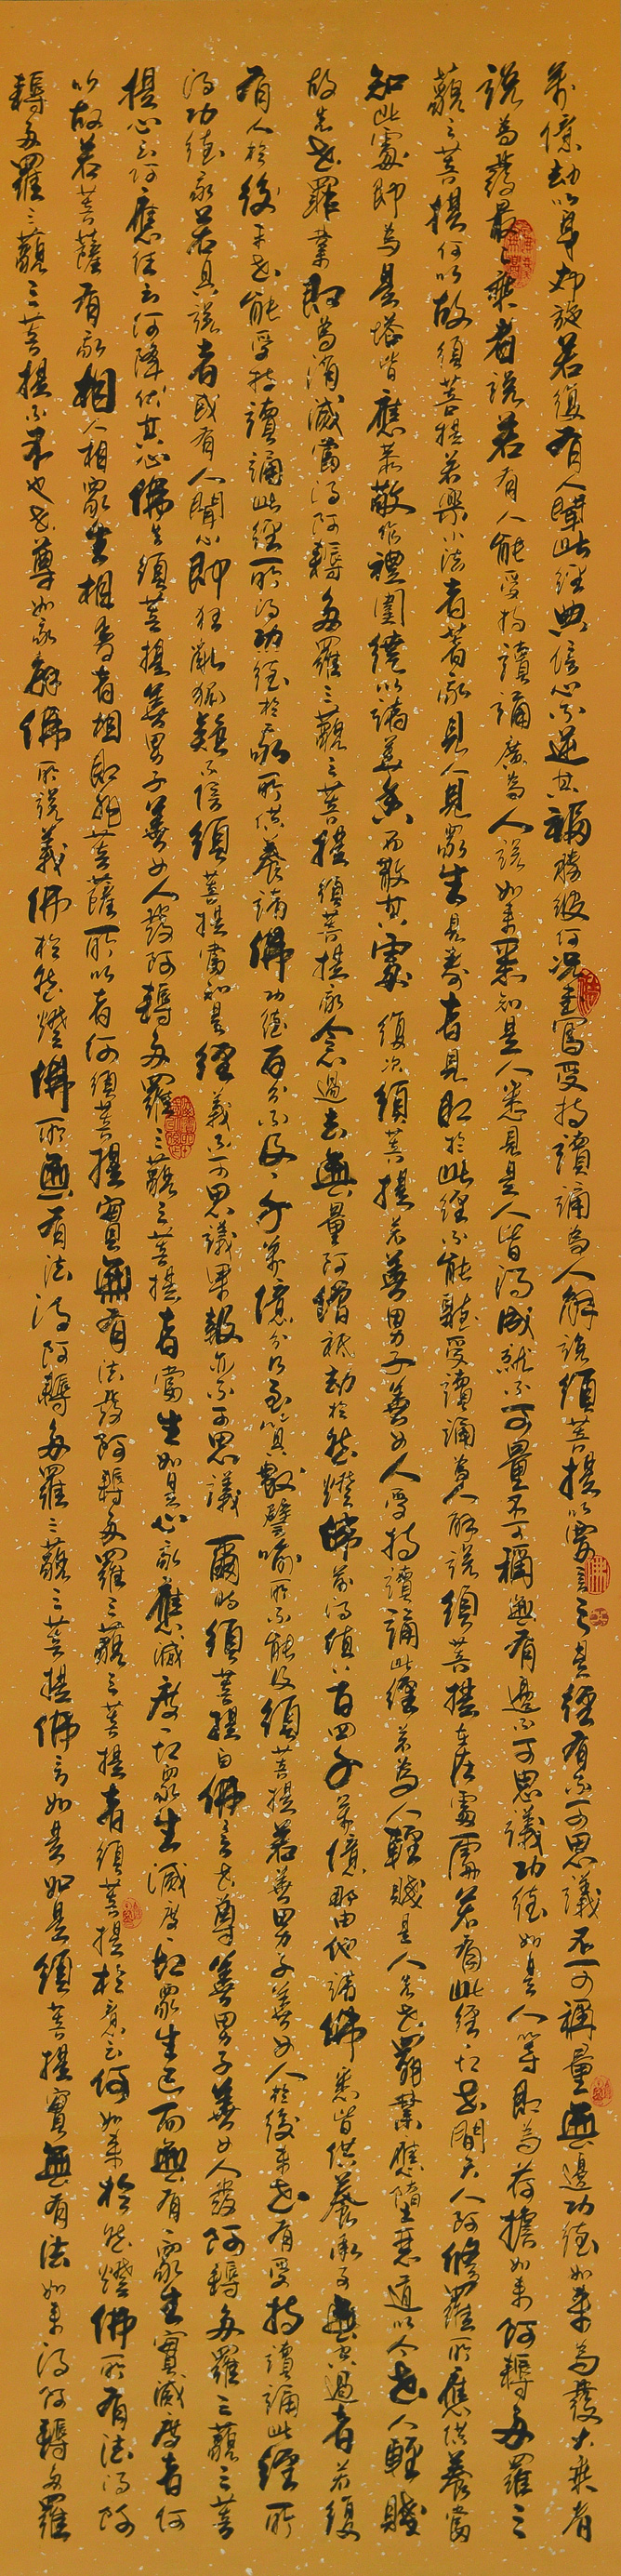 萬億劫以身布施若復有人聞此經典信心不逆其福勝彼何況書寫受持讀誦為人解說須菩提以要言之是經有不可思議不可稱量無邊功德如來為發大乘者
說為發最上乘者說若有人能受持讀誦廣為人說如來悉知是人悉見是人皆得成就不可量不可稱無有邊不可思議功德如是人等即為荷擔如來阿耨多羅三
藐三菩提何以故須菩提若樂小法者著我見人見眾生見壽者見即於此經不能聽受讀誦為人解說須菩提在在處處若有此經一切世間天人阿修羅所應供養當
知此處即為是塔皆應恭敬作禮圍繞以諸華香而散其處復次須菩提若善男子善女人受持讀誦此經若為人輕賤是人先世罪業應墮惡道以今世人輕賤
故先世罪業即為消滅當得阿耨多羅三藐三菩提須菩提我念過去無量阿僧祇劫於然燈佛前得值八百四千萬億那由他諸佛悉皆供養承事無空過者若復
有人於後末世能受持讀誦此經所得功德於我所供養諸佛功德百分不及一千萬億分乃至算數譬喻所不能及須菩提若善男子善女人於後末世有受持讀誦此經所
得功德我若具說者或有人聞心即狂亂狐疑不信須菩提當知是經義不可思議果報亦不可思議爾時須菩提白佛言世尊善男子善女人發阿耨多羅三藐三菩
提心云何應住云何降伏其心佛告須菩提善男子善女人發阿耨多羅三藐三菩提者當生如是心我應滅度一切眾生滅度一切眾生已而無有一眾生實滅度者何
以故若菩薩有我相人相眾生相壽者相即非菩薩所以者何須菩提實無有法發阿耨多羅三藐三菩提者須菩提於意云何如來於然燈佛所有法得阿
耨多羅三藐三菩提不不也世尊如我解佛所說義佛於然燈佛所無有法得阿耨多羅三藐三菩提佛言如是如是須菩提實無有法如來得阿耨多羅